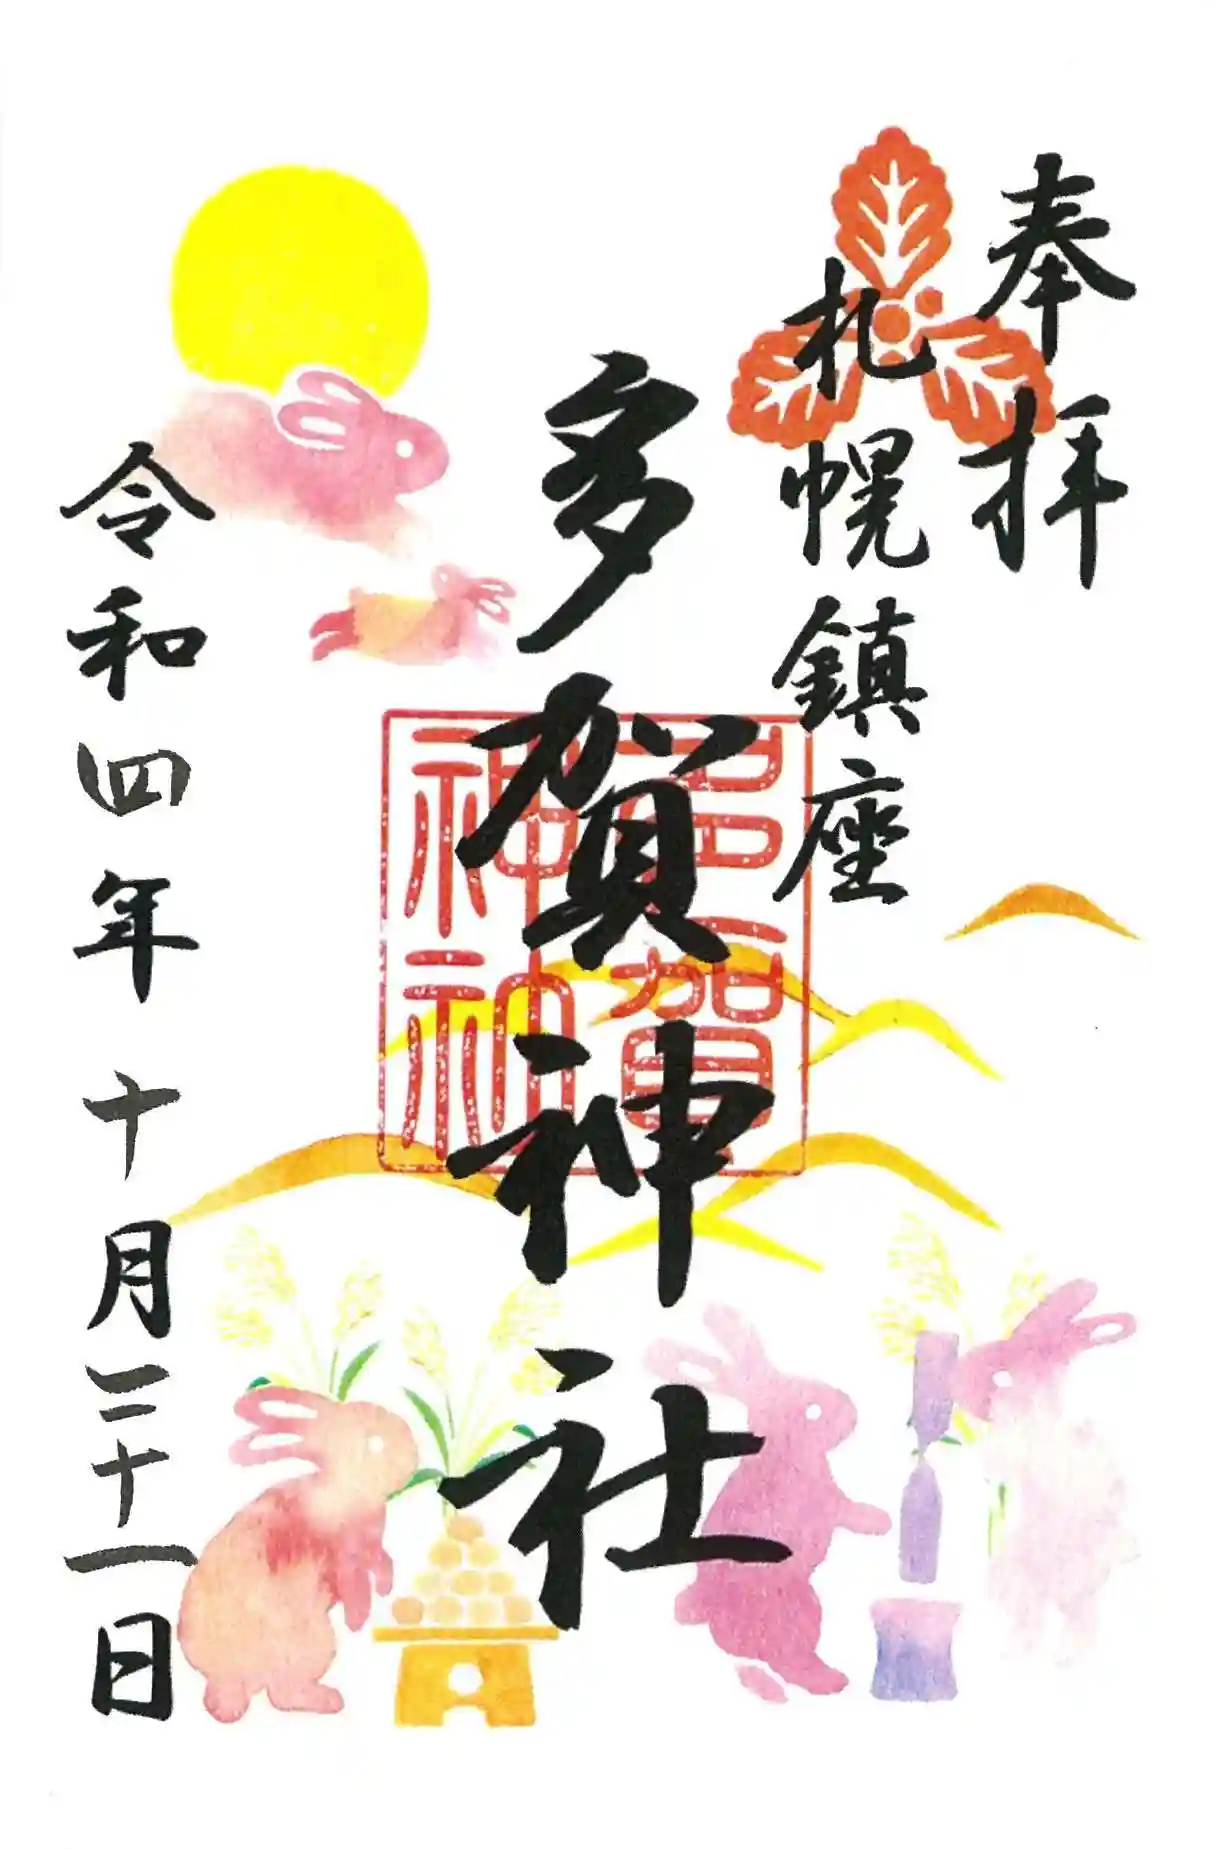 奉拝
札幌鎮座
多賀神社
多賀神社
令和四年十月三十一日